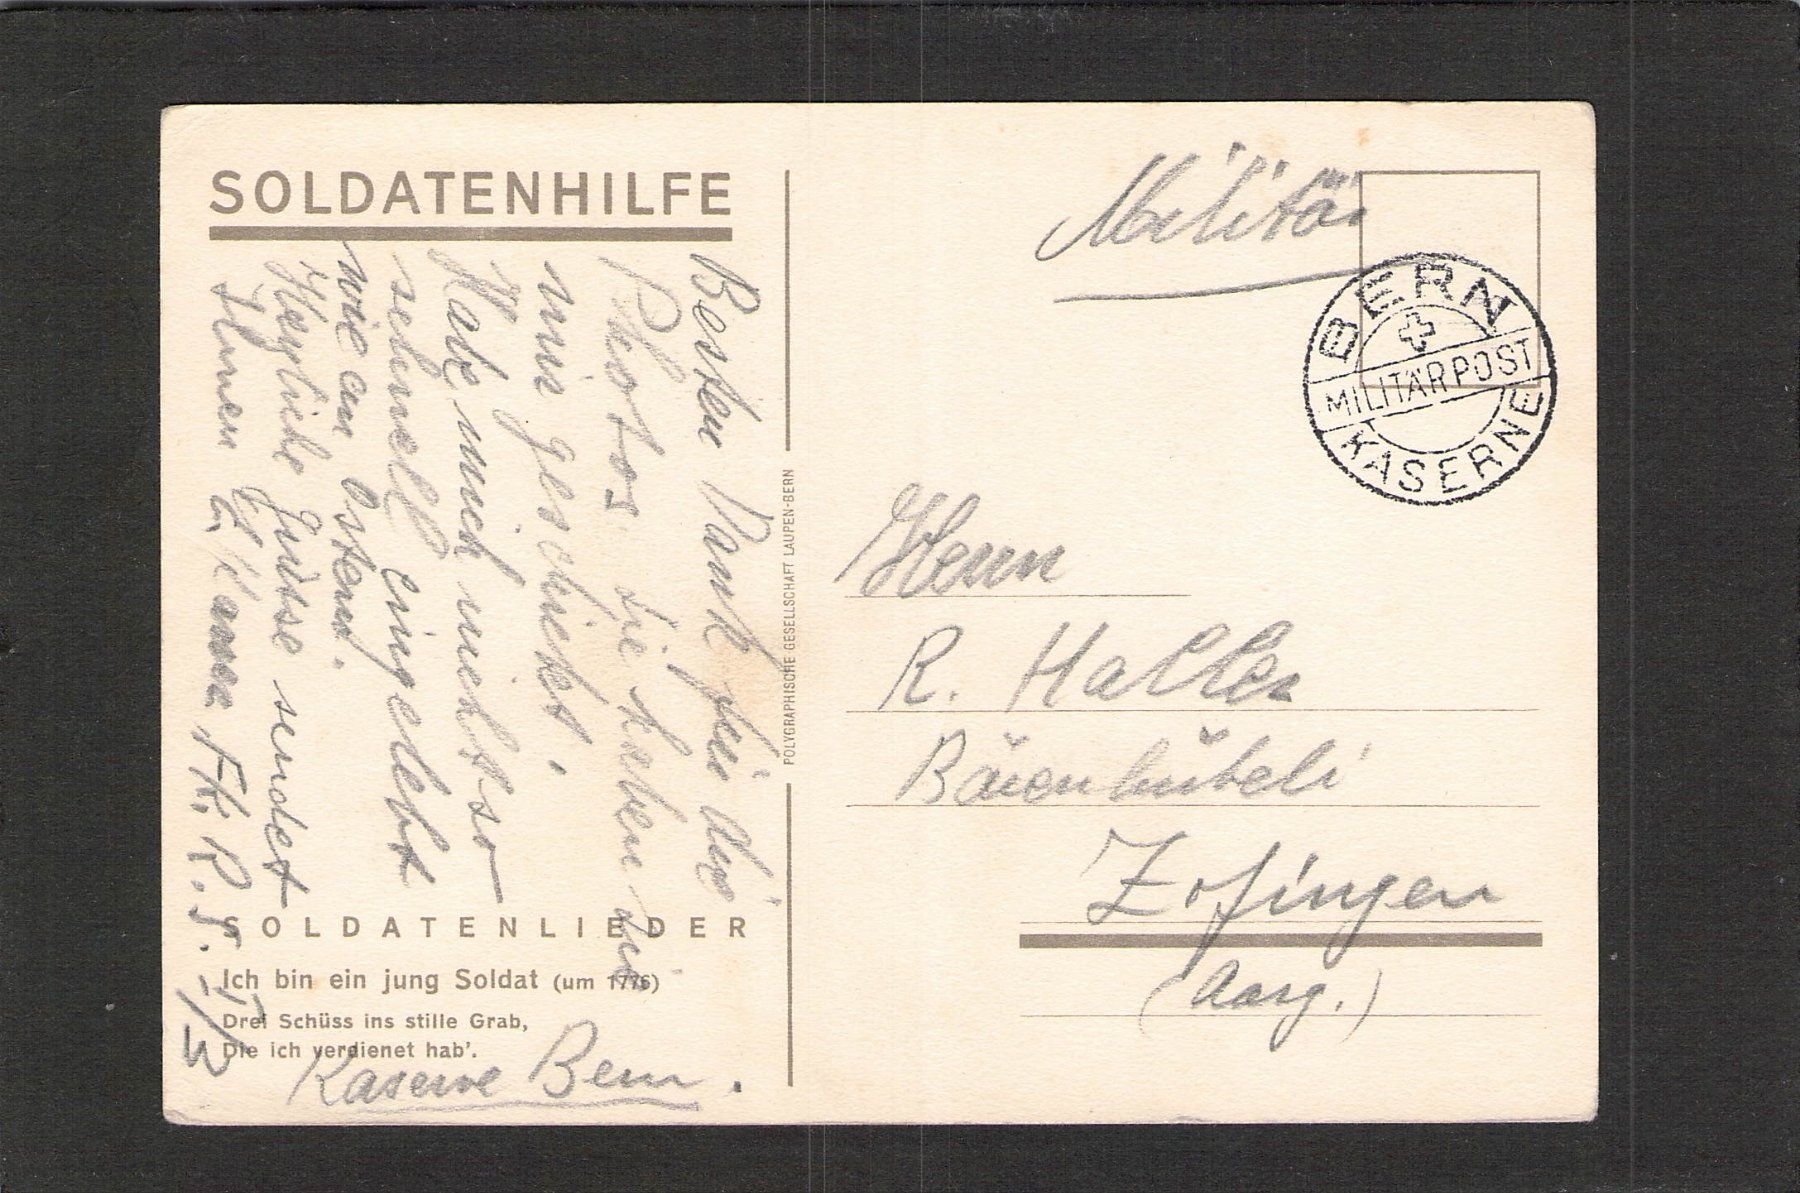 SOLDATENHILFE
Besten Dank für die
Photos die haben sie
mir geschickt.
Habe mich nicht so
schnell eingelebt
wie an Ostern.
Herzliche Grüsse sendet
Ihnen
R. S. I/3
SOLDATENLIEDER
Ich bin ein jung Soldat (um 1776)
Drei Schüss ins stille Grab,
Die ich verdienet hab'.
Kaserne Bern.
POLYGRAPHISCHE GESELLSCHAFT LAUPEN-BERN
Militär
BERN
MILITÄRPOST
KASERNE
Herrn
R. Haller
Bärenhübeli
Zofingen
(Aarg.)